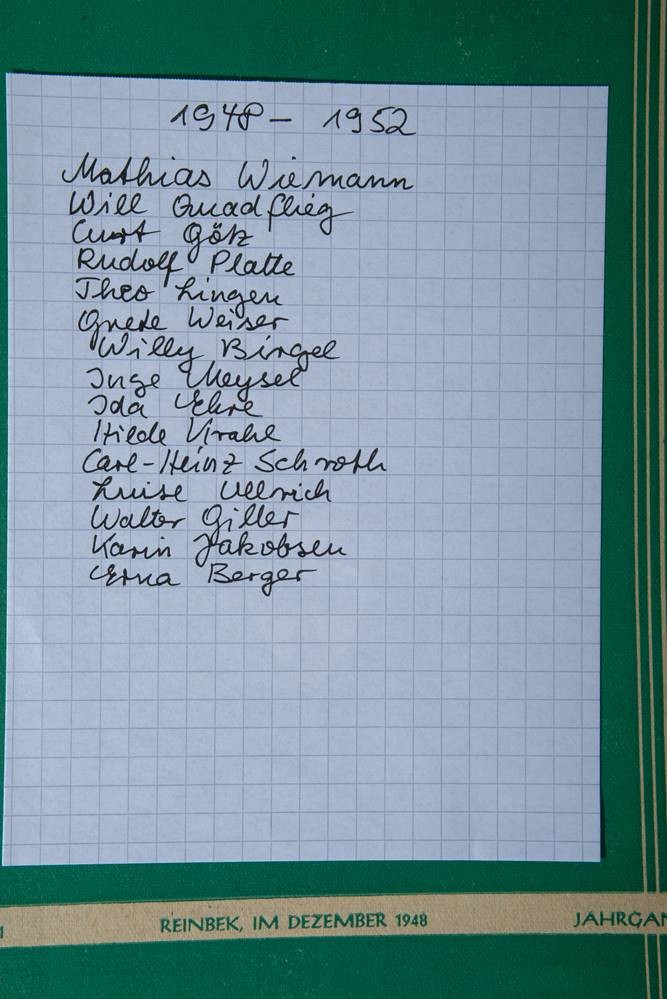 1948 – 1952
Mathias Wiemann
Will Quadflieg
Curt Götz
Rudolf Platte
Theo Lingen
Grete Weiser
Willy Birgel
Inge Meysel
Ida Ehre
Hilde Krahl
Carl-Heinz Schroth
Luise Ullrich
Walter Giller
Karin Jakobsen
Erna Berger
REINBEK, IM DEZEMBER 1948 JAHRGAN